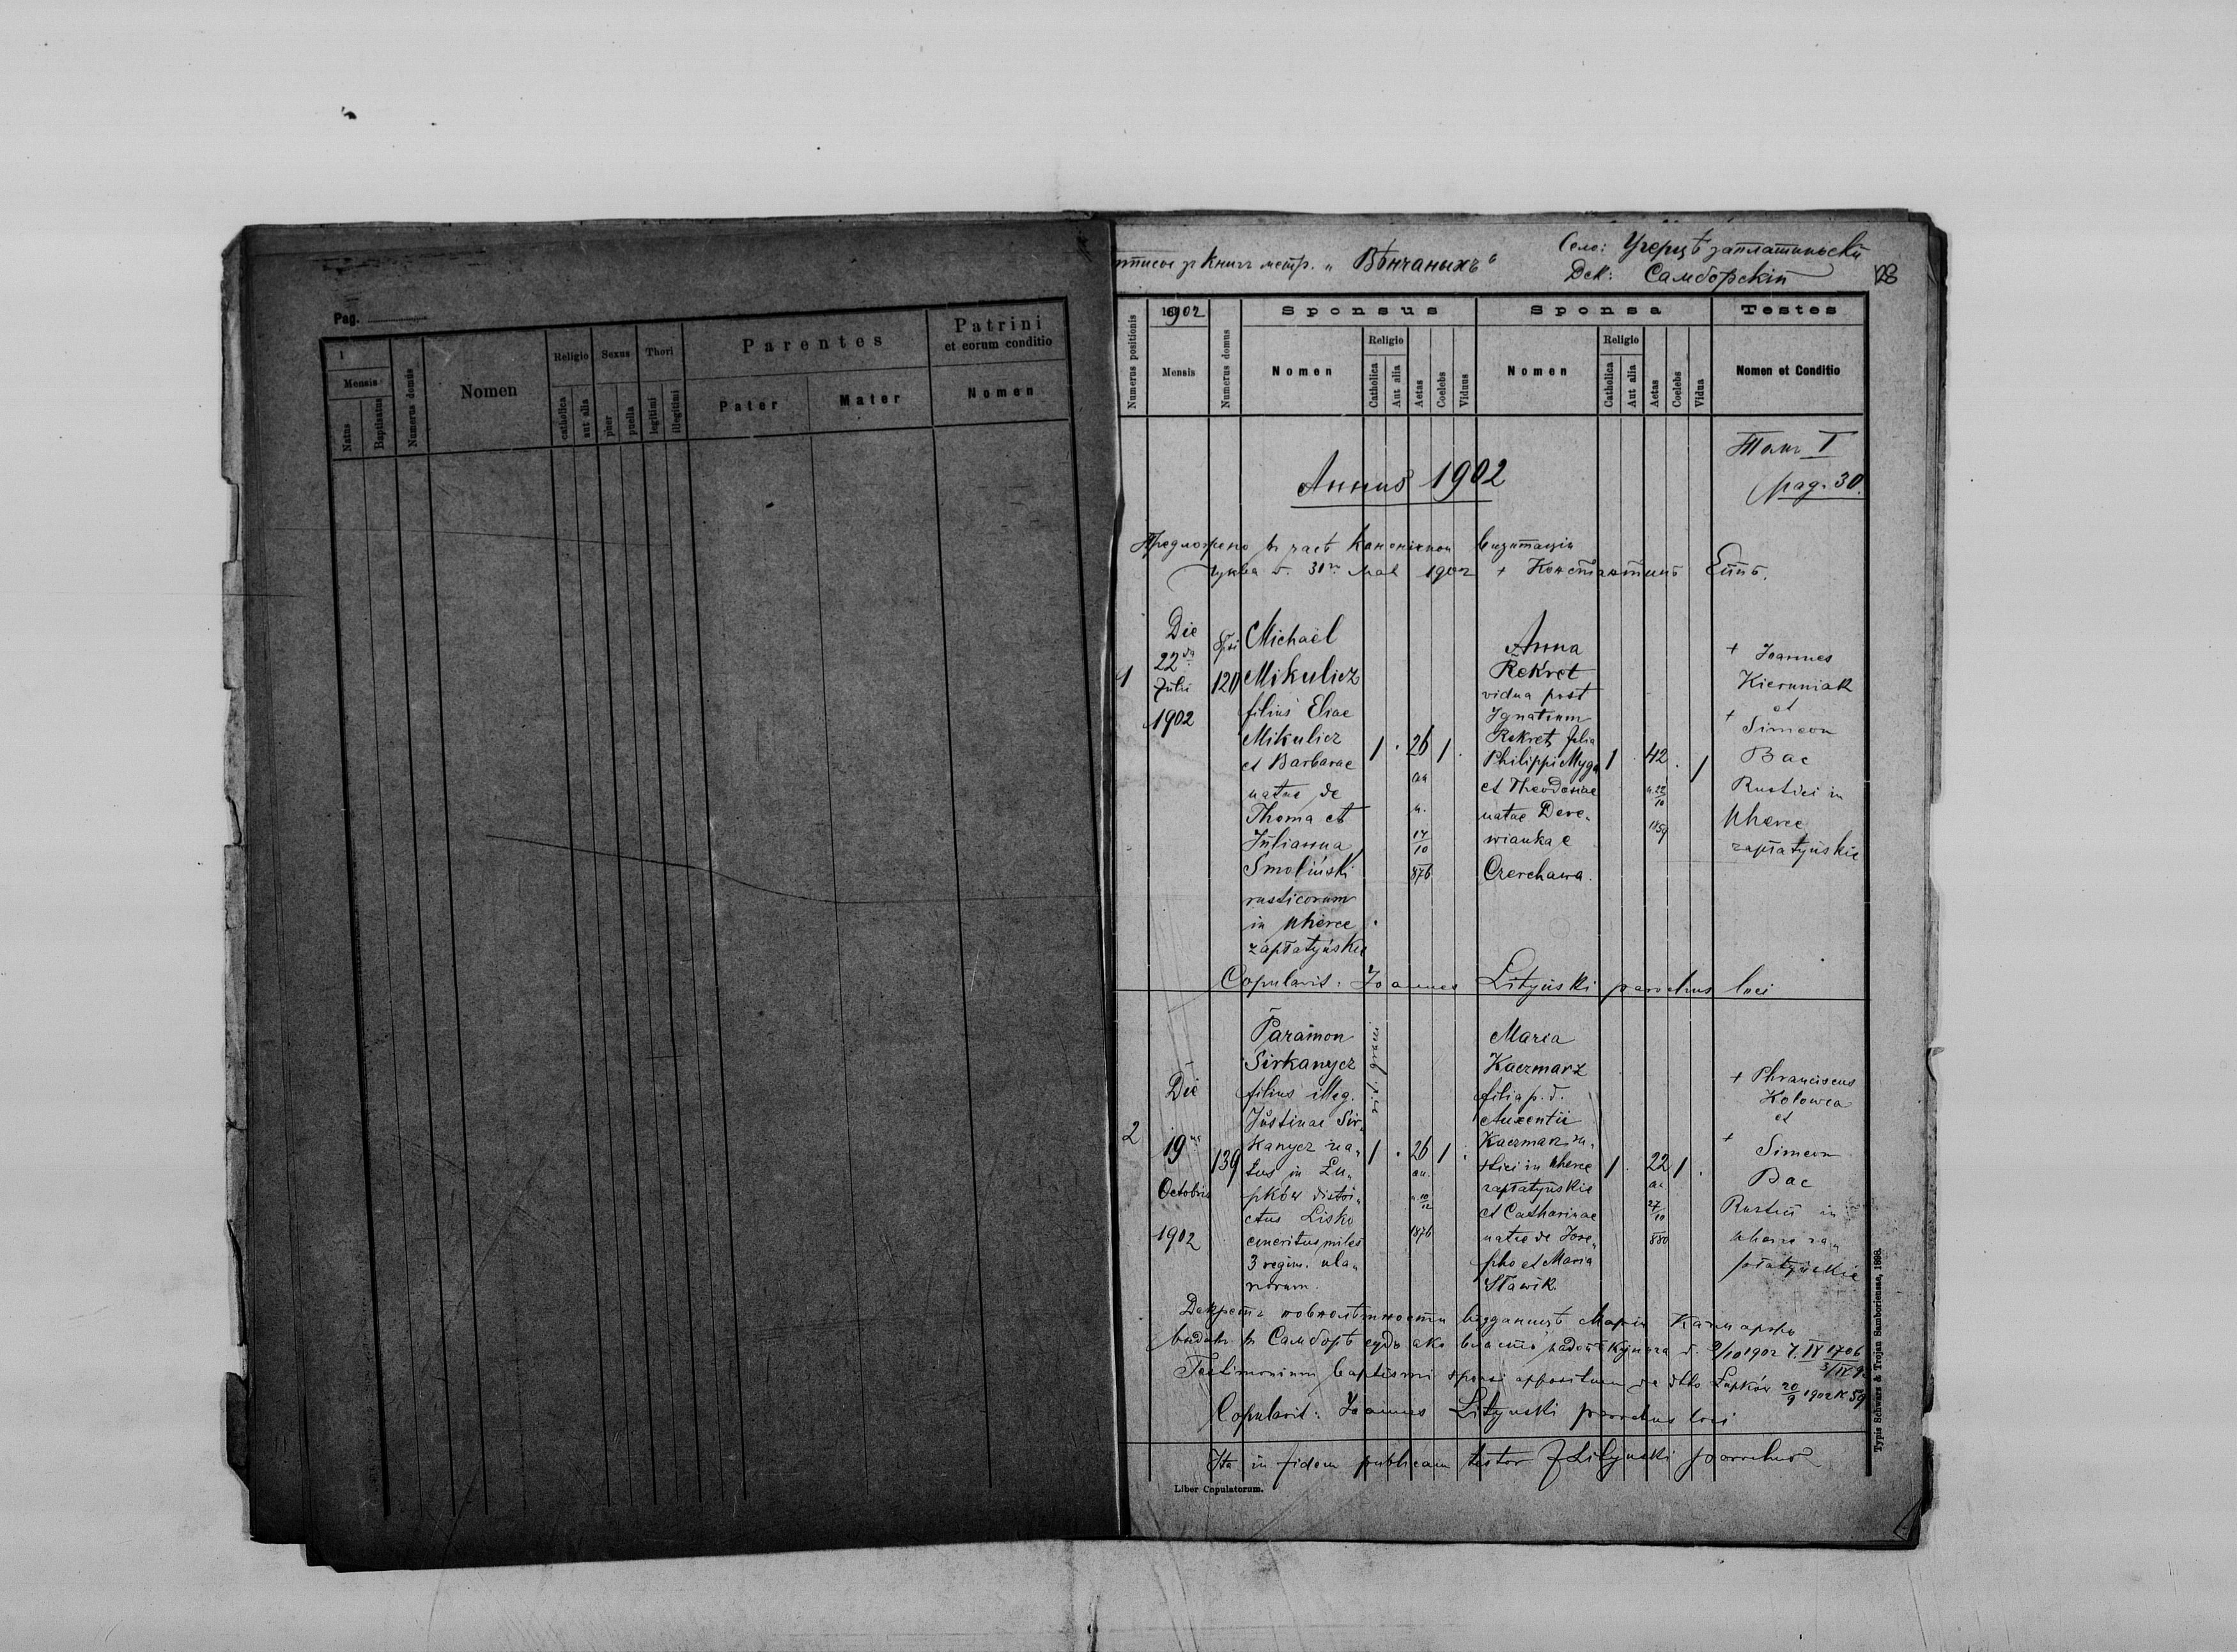 Pag.
1
Mensis
Natus
Baptisatus
Numerus domus
Nomen
Religio
catholica
aut alia
Sexus
puer
puella
Thori
legitimi
illegitimi
Parentes
Pater
Mater
Patrini
et eorum conditio
Nomen
метр. „Вѣнчаныхъ"
Село: Угерцѣ заплатиньскіи
Дек: Самборскій
128
Numerus positionis
1902
Mensis
Numerus domus
Sponsus
Nomen
Religio
Catholica
Aut alia
Aetas
Coelebs
Viduus
Sponsa
Nomen
Religio
Catholica
Aut alia
Aetas
Coelebs
Vidua
Testes
Nomen et Conditio
Том I
pag. 30.
Annus 1902
Предложено въ часѣ каноничнои визитаціи
30го Мая 1902 + Константинъ Епп.
1
Die
22da
Julii
1902
120
Michaël
Mikulicz
filius Eliae
Mikulicz
et Barbarae
natae de
Thoma et
Julianna
Smoliński
rusticorum
in Uherce
zapłatyńskie
1 . 26 1 .
an
n.
14/10
876
Anna
Rekret
vidua post
Ignatium
Rekret, filia
Philippi Myga
et Theodosiae
natae Dere„
wianka e
Czerchawa.
1 . 42 . 1
n. 22/10
1859
+ Joannes
Kieruniak
et
+ Simeon
Bac
Rustici in
Uherce
zapłatyńskie
Copulavit: Joannes Lityński parochus loci
2
Die
19na
Octobris
1902
139
Paramon
Sirkanycz
filius illeg.
Justinae Sir„
kanycz na„
tus in Łu„
pków distri„
ctus Lisko
emeritus miles
3 regim. ula„
norum.
rit. graeci
1 . 26 1 .
an.
n. 10/12
1876
Maria
Kaczmarz
filia p. d.
Auxentii
Kaczmarz ru„
stici in Uherce
zapłatyńskie
et Catharinae
natae de Jose„
pho et Maria
Sławik.
1 . 22 1 .
an
27/10
880
+ Phranciscus
Kolowca
et
+ Simeon
Bac
Rustici in
Uherce za„
płatyńskie
Декретъ повнолѣтности вѣдданицѣ Маріи Качмаръ
выданъ въ Самборѣ судъ ако власть 9/10 1902
Testimonium baptismi sponsi appositum de dtto Łupków 20/9 1902 N 59
Copulavit: Joannes Lityński parochus loci
Ita in fidem publicam testor J Lityński parochus
Liber Copulatorum.
Typis Schwarz & Trojan Samboriensae, 1898.